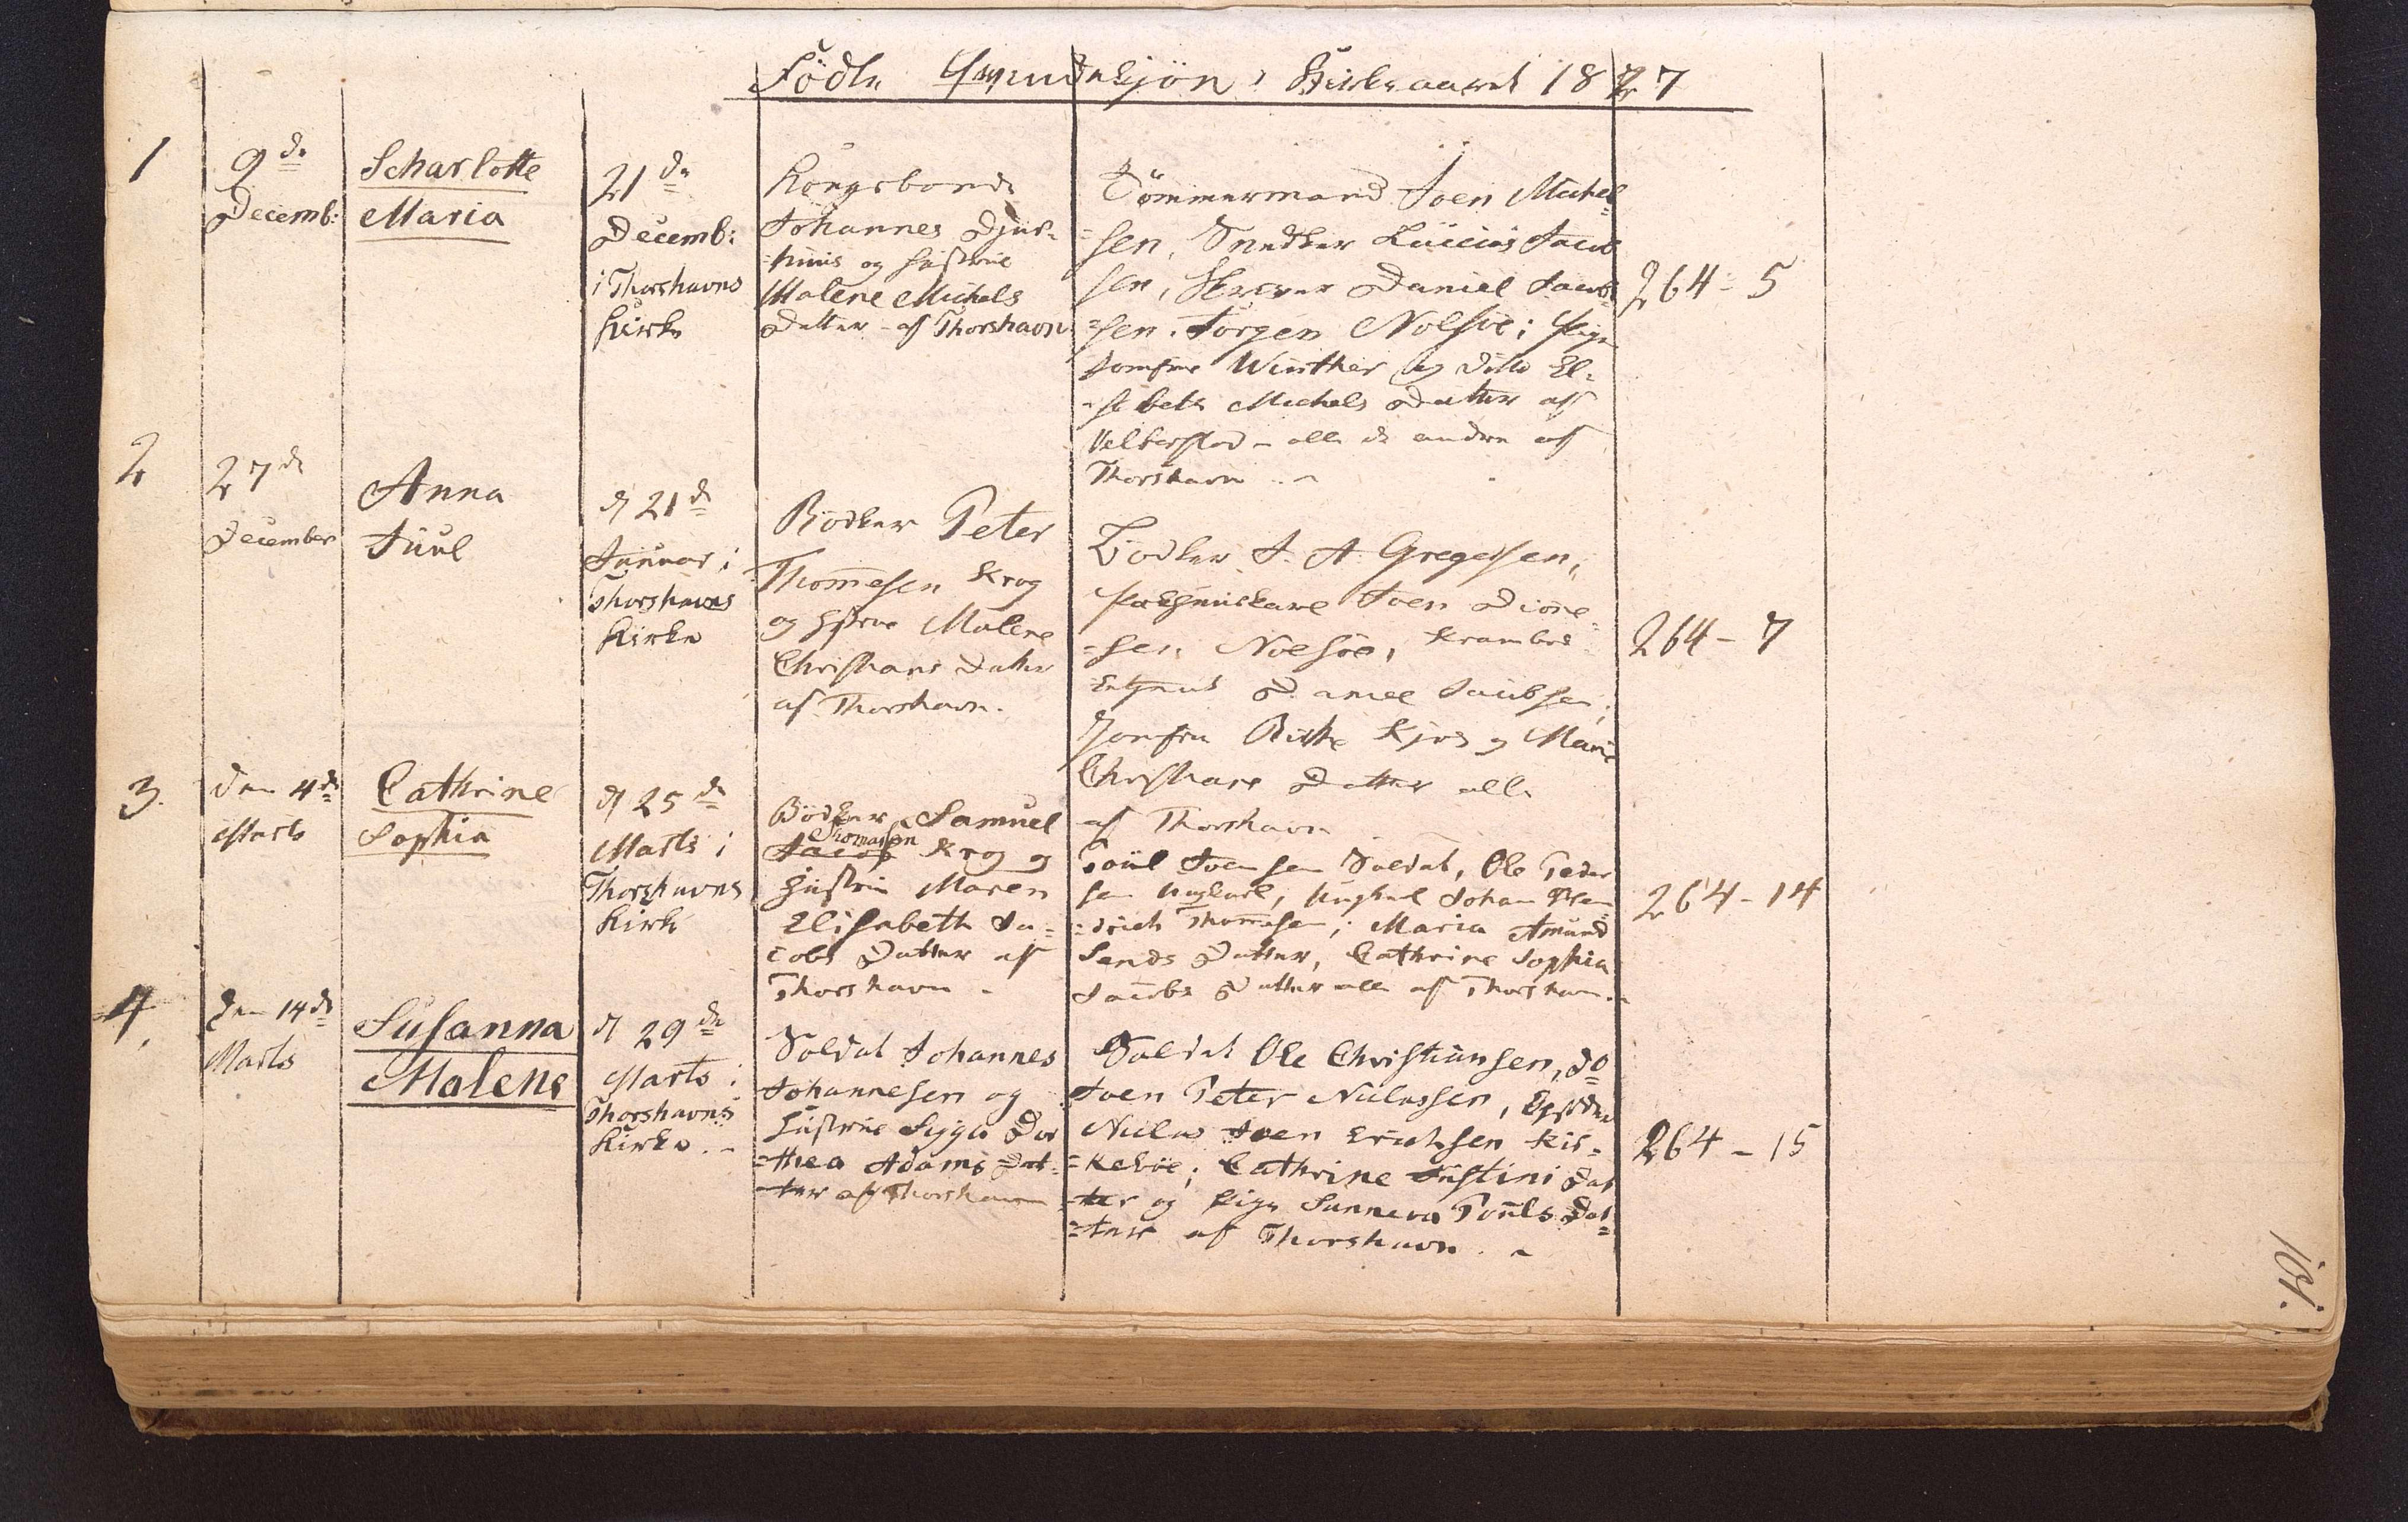 Födte Qvindekjön i Kirkeaaret 1827
1
9de
Decemb:
Scharlotte
Maria
21de
Decemb:
i Thorshavns
Kirke
Kongsbonde
Johannes Djur-
=huus og Hustrue
Malene Michels
Datter - af Thorshavn
Tömmermand Joen Michel
=sen, Snedker Lucias Jacob
sen, Skriver Daniel Jacob
=sen. Jörgen Nolsöe; Pige
Jomfrue Winther og ditto El-
-sebeth Michels Datter af
Velberstad - alle de andre af
Thorshavn
264-5
2
27de
December
Anna
Juul
d 21de
Januar i
Thorshavns
Kirke
Bödker Peter
Thomesen Krog
og Hustrue Malene
Christians Datter
af Thorshavn.
Bödker J. A. Gregersen,
Joen Dione
=sen Nolsöe,
Daniel Jacobsen;
Jomfru og Marie
Christians Datter alle
af Thorshavn
264-7
3.
den 4de
Marts
Cathrine
Sophia
d 25de
Marts i
Thorshavns
Kirke
Bödker Samuel
Thomassen
Jacob Krog og
Hustrue Maren
Elisabeth Ja-
cobs Datter af
Thorshavn -
Poul Joensen Soldat, Ole Peder
sen Ungkarl, Ungkarl Johan Hen
=drich Thomesen; Maria Amund
Sends Datter, Cathrine Sophia
Jacobs Datter alle af Thorshavn.
264-14
4.
den 14de
Marts
Susanna
Malene
d 29de
Marts i
Thorshavns
Kirke. -
Soldat Johannes
Johannesen og
Hustrue Sigga Dor
=thea Adams Dat-
-ter af Thorshavn
Soldat Ole Christiansen, do
Joen Peter Niclassen,
Niclas Joen Erichsen Kir-
=keböe; Cathrine Justini Dat
-ter og Pige Sunneva Pouls Dat
=ter af Thorshavn. -
264-15
101.